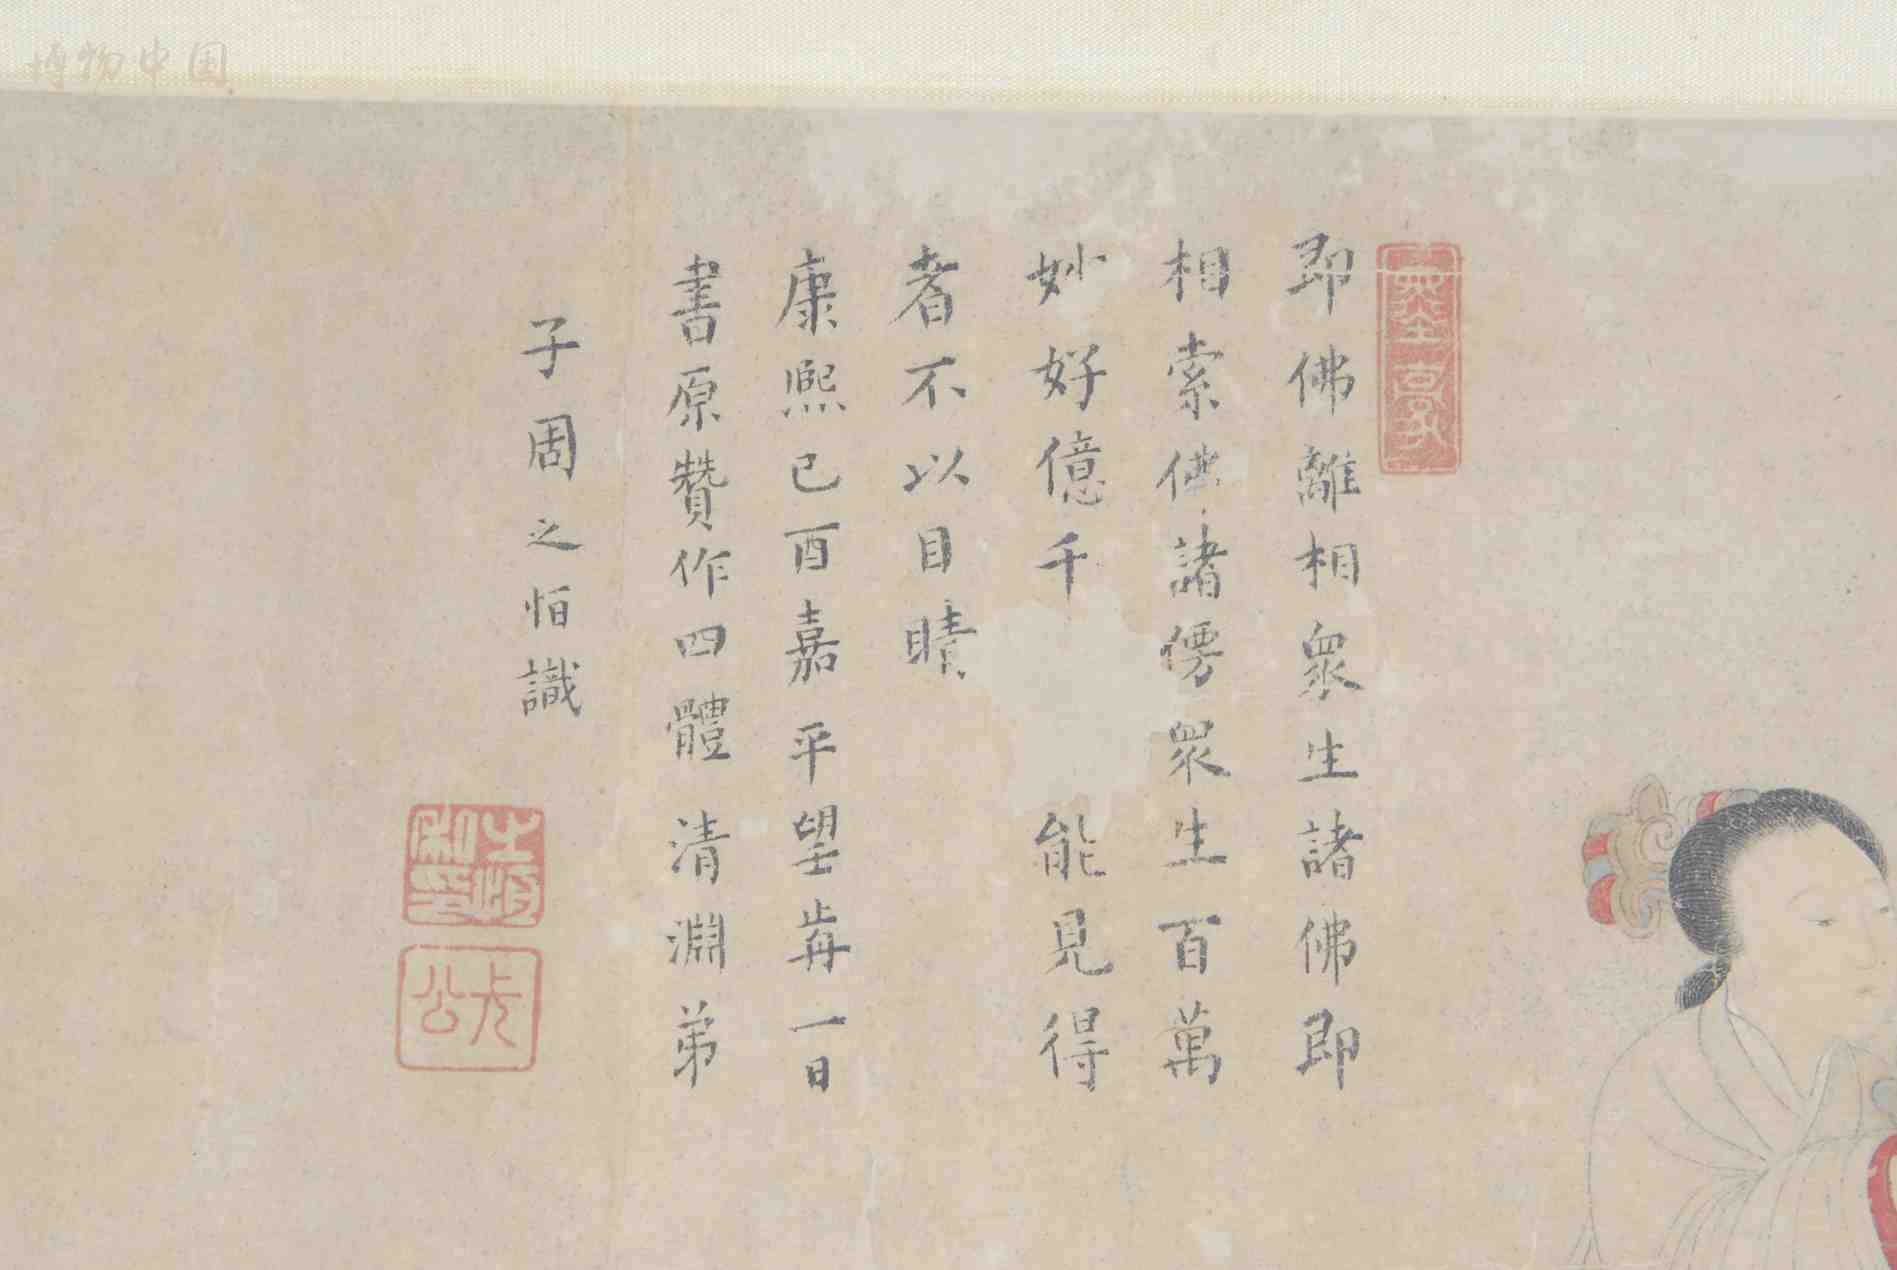 即佛離相眾生諸佛即
相索佛諸儚眾生百萬
妙好億千能見得
者不以目睛
康熙己酉嘉平望前一日
書原贊作四體清淵弟
子周之恒識
博物中国